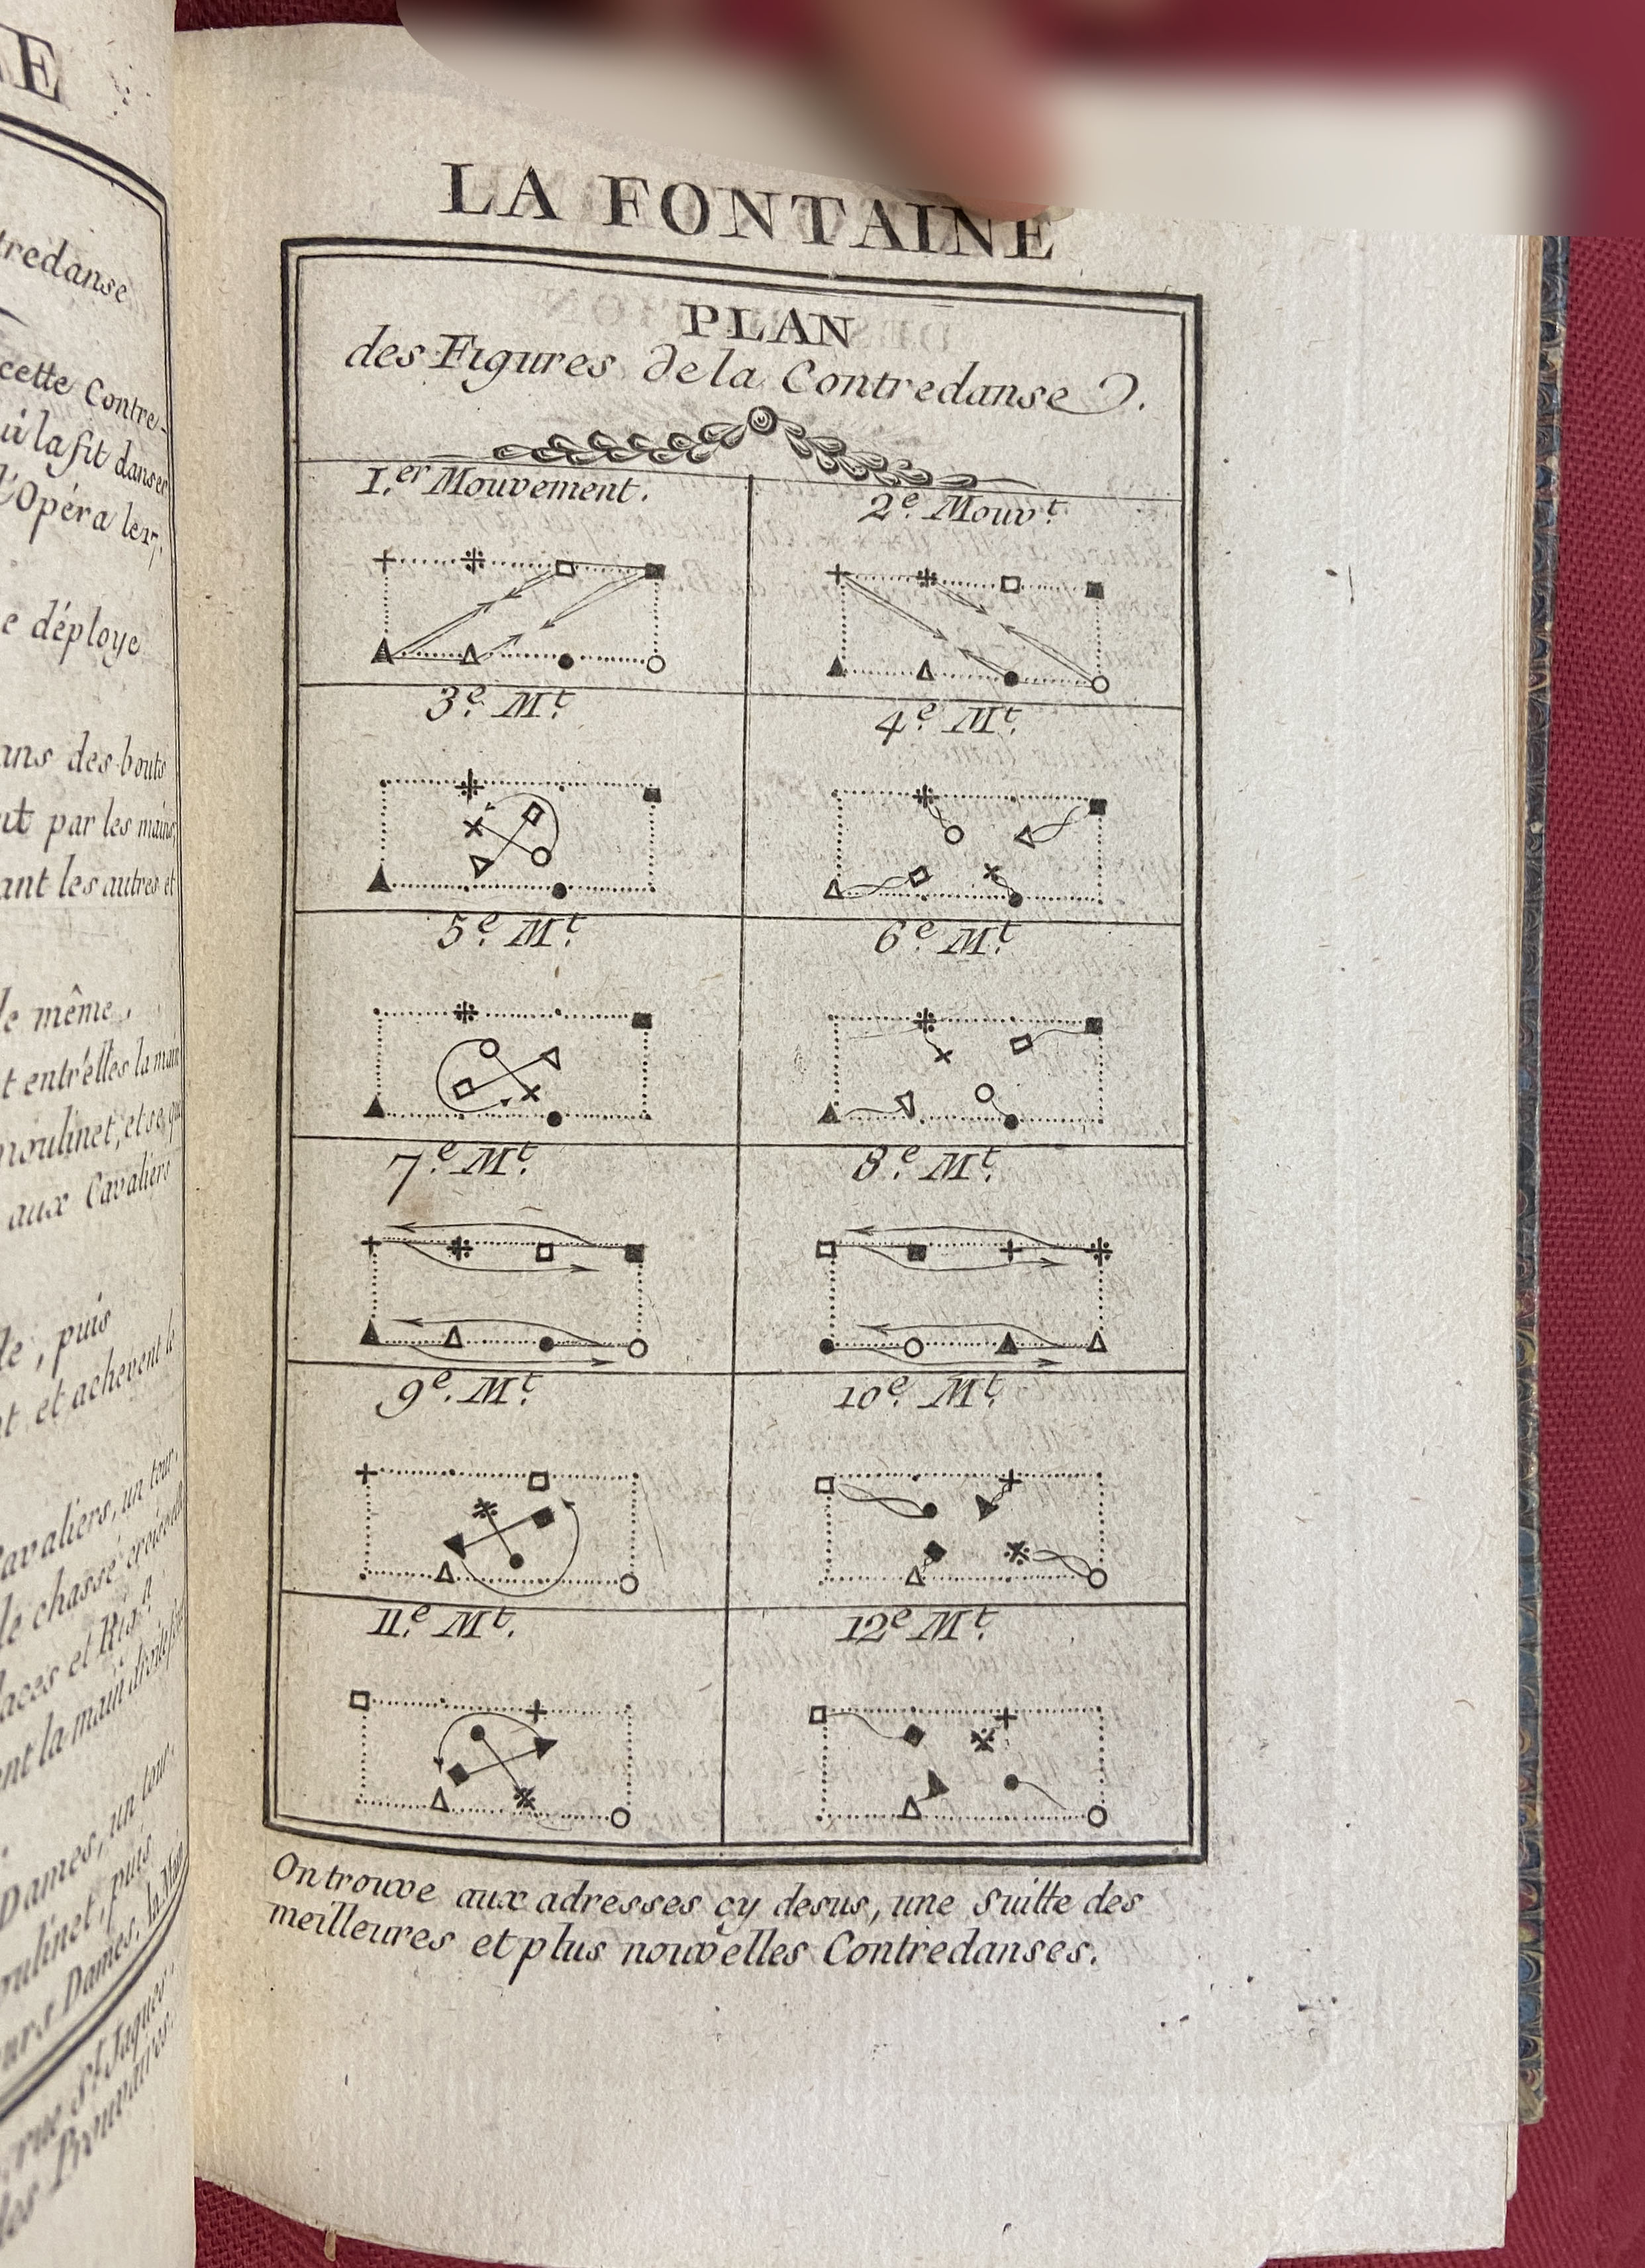 E
tredanse
cette Contre-
la fit danser
l'Opéra le
e déploye
ans des bouts
par les mains
ant les autres et
de même,
t entr'elles la main
moulinet, et se
aux Cavaliers
puis
et achevent le
Cavaliers, un tour,
le chassé croisé
et Rig.
la main droite
Dames, un tour,
moulinet, puis
Dames, la Main
rue St. Jaques
LA FONTAINE
PLAN
des Figures de la Contredanse.
1.er Mouvement.
2.e Mouv.t
3.e M.t
4.e M.t
5.e M.t
6.e M.t
7.e M.t
8.e M.t
9.e M.t
10.e M.t
11.e M.t
12.e M.t
On trouve aux adresses cy desus, une Suitte des
meilleures et plus nouvelles Contredanses.